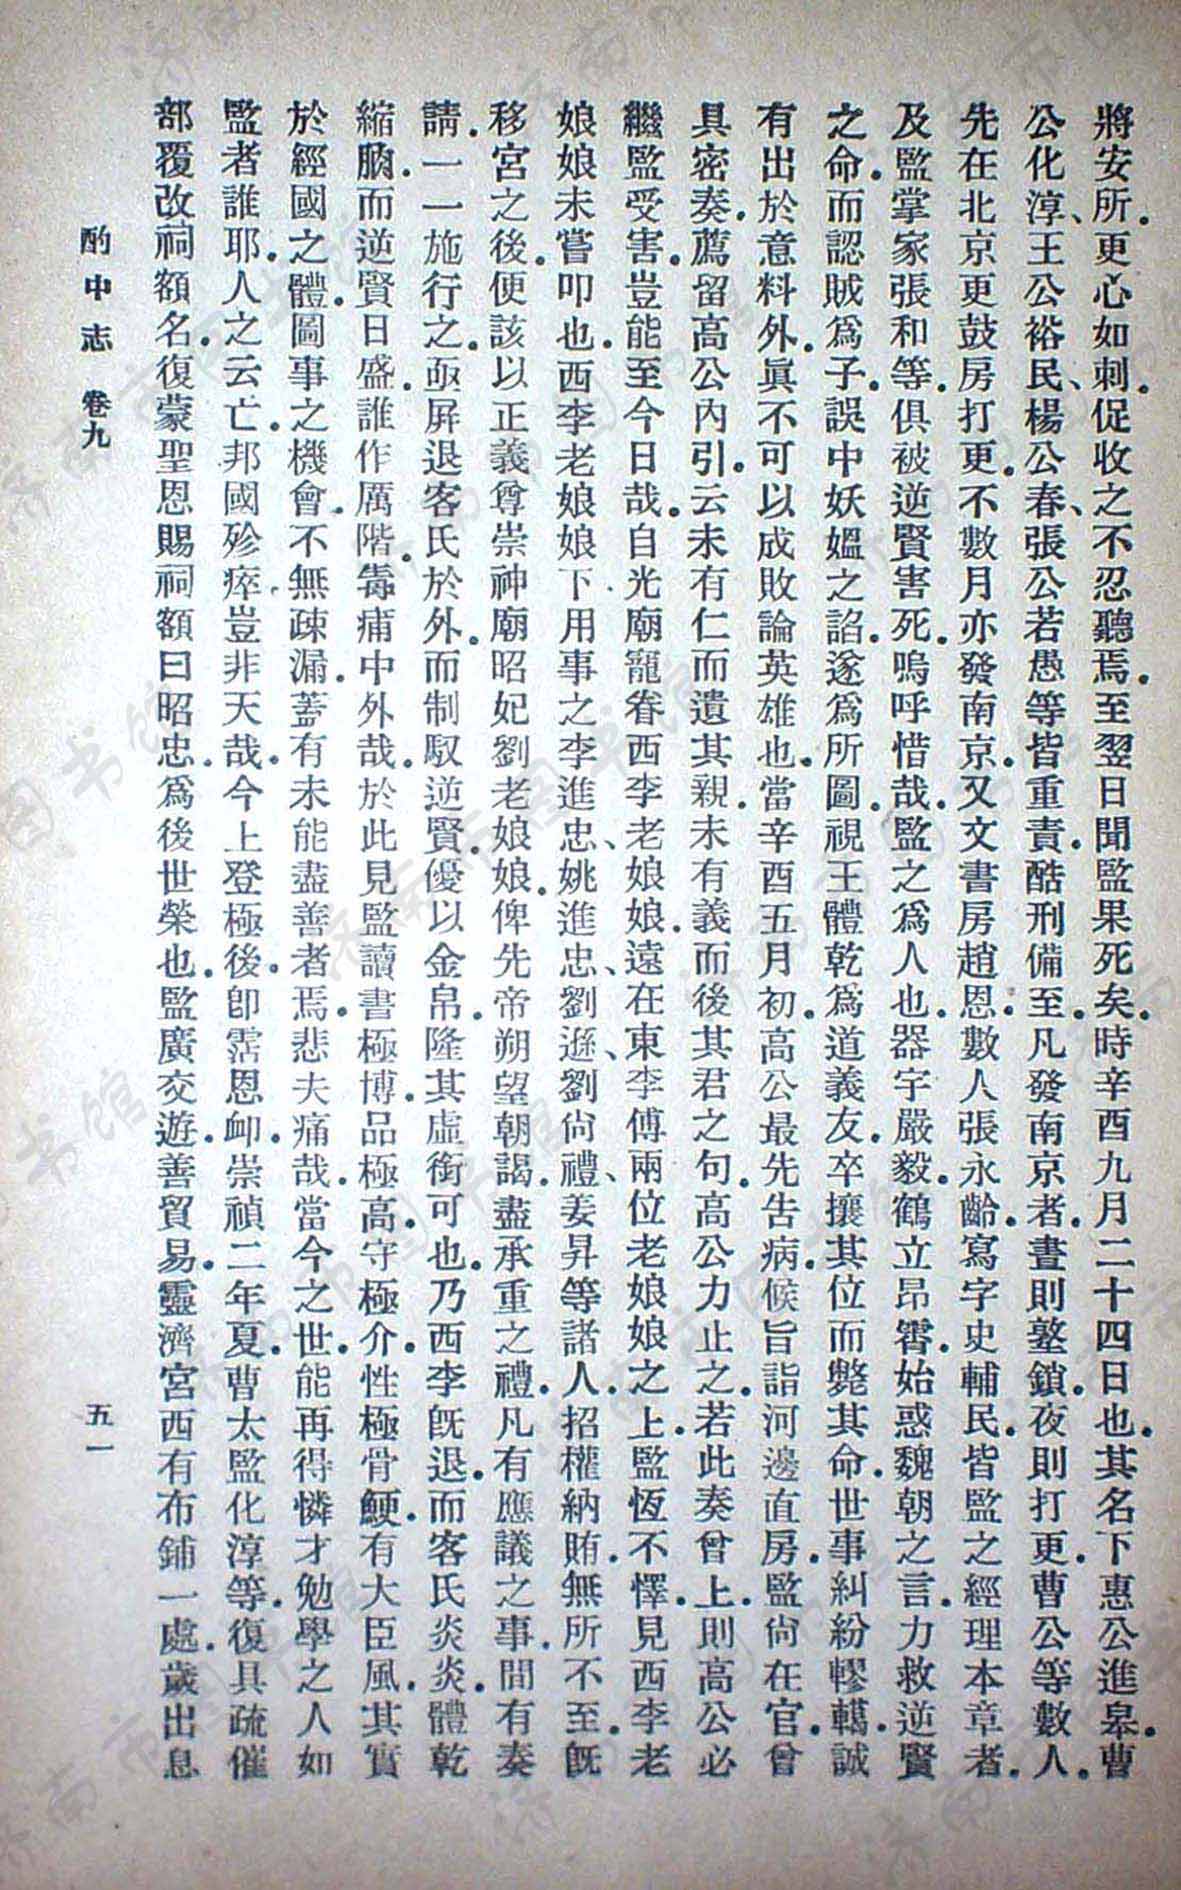 將安所。更心如刺。促收之不忍聽焉。至翌日聞監果死矣。時辛酉九月二十四日也。其名下惠公進皋。曹
公化淳、王公裕民、楊公春、張公若愚等皆重責。酷刑備至。凡發南京者。晝則墼鎖。夜則打更。曹公等數人。
先在北京更鼓房打更。不數月亦發南京。又文書房趙恩。數人張永齡。寫字史輔民。皆監之經理本章者。
及監掌家張和等。俱被逆賢害死。嗚呼惜哉。監之爲人也。器宇嚴毅。鶴立昂霄。始惑魏朝之言。力救逆賢
之命。而認賊爲子。誤中妖媼之諂。遂爲所圖。視王體乾爲道義友。卒攘其位而斃其命。世事糾紛轇轕。誠
有出於意料外。眞不可以成敗論英雄也。當辛酉五月初。高公最先告病。候旨詣河邊直房。監尙在官。曾
具密奏。薦留高公內引。云未有仁而遺其親。未有義而後其君之句。高公力止之。若此奏曾上。則高公必
繼監受害。豈能至今日哉。自光廟寵眷西李老娘娘。遠在東李傅兩位老娘娘之上。監恆不懌。見西李老
娘娘未嘗叩也。西李老娘娘下用事之李進忠、姚進忠、劉遜、劉尙禮、姜昇等諸人。招權納賄。無所不至。旣
移宮之後。便該以正義尊崇神廟昭妃劉老娘娘。俾先帝朔望朝謁。盡承重之禮。凡有應議之事。間有奏
請。一一施行之。亟屏退客氏於外。而制馭逆賢。優以金帛。隆其虛銜可也。乃西李旣退。而客氏炎炎。體乾
縮朒。而逆賢日盛。誰作厲階。毒痡中外哉。於此見監讀書極博。品極高。守極介。性極骨鯁。有大臣風。其實
於經國之體。圖事之機會。不無疎漏。蓋有未能盡善者焉。悲夫痛哉。當今之世。能再得憐才勉學之人如
監者誰耶。人之云亡。邦國殄瘁。豈非天哉。今上登極後。卽霑恩卹。崇禎二年夏。曹太監化淳等。復具疏催
部覆改祠額名。復蒙聖恩賜祠額曰昭忠。爲後世榮也。監廣交遊。善貿易。靈濟宮西有布鋪一處。歲出息
酌中志 卷九
五一